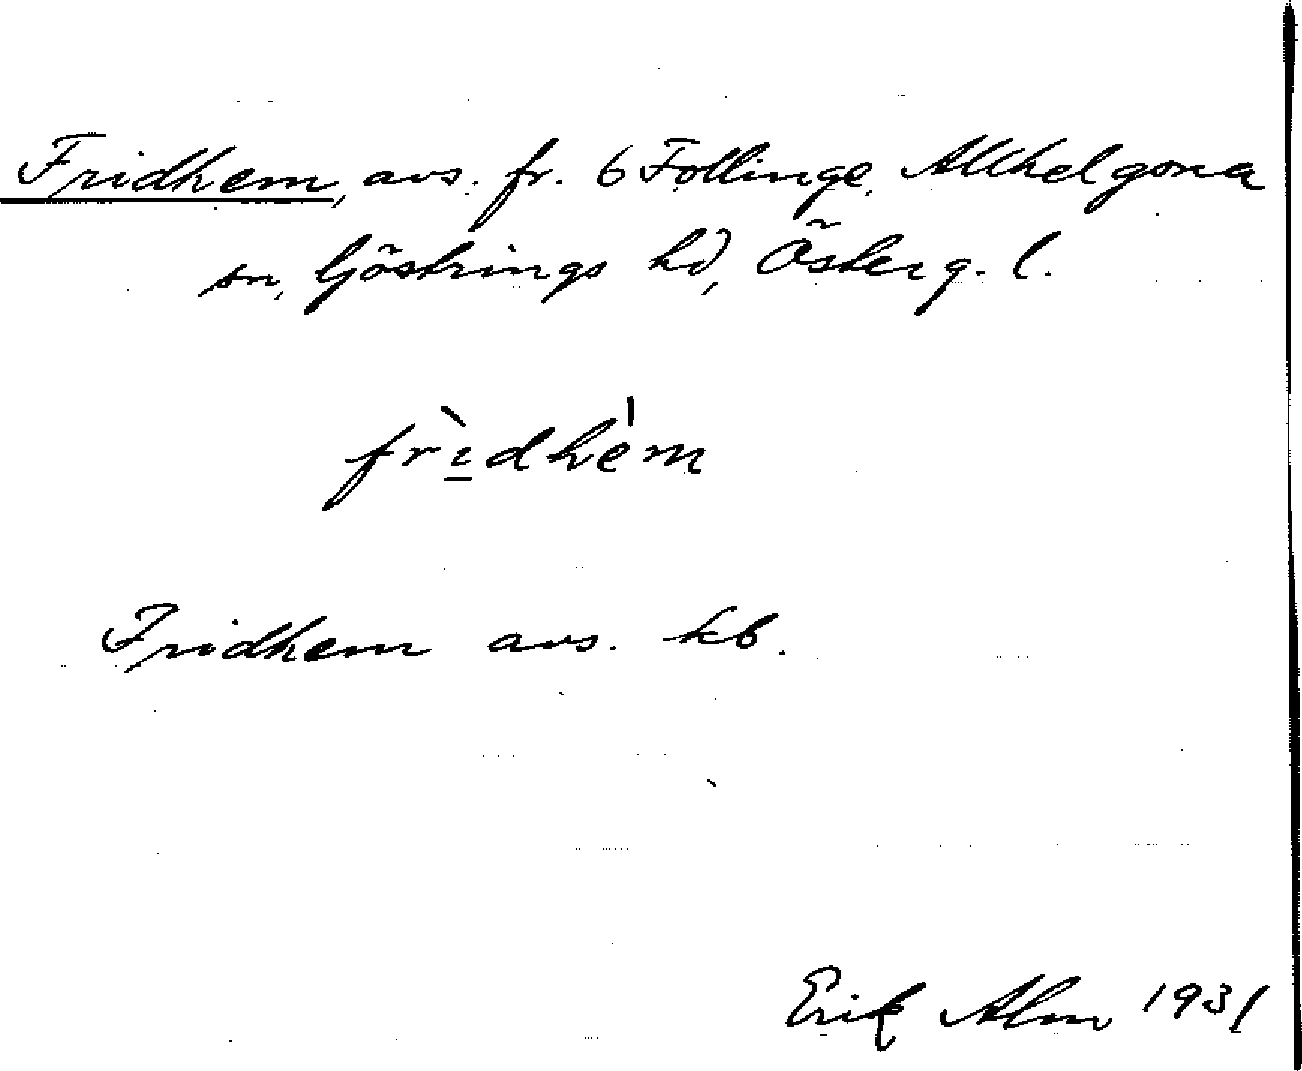 Fridhem, avs. fr. 6 Follinge, Allhelgona
sn, Göstrings hd, Österg. l.
frì̲dhe̍m
Fridhem avs. kb.
Erik Alm 1931